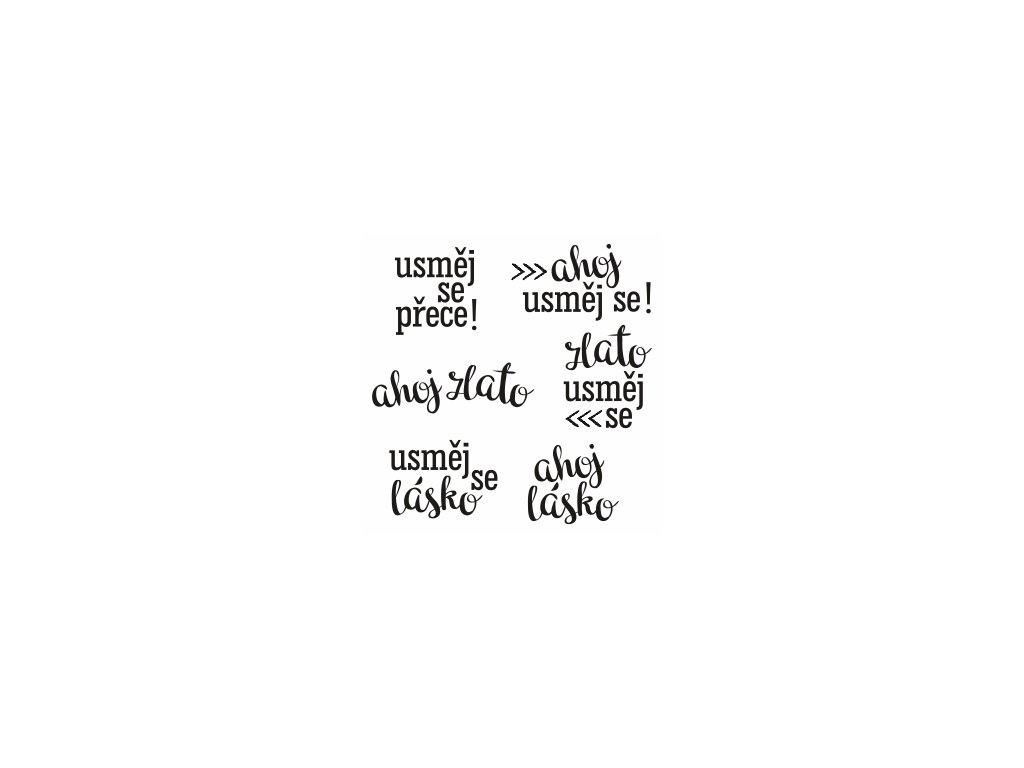 usměj
se
přece!
>>>ahoj
usměj se!
ahoj zlato
zlato
usměj
<<<se
usměj
se
lásko
ahoj
lásko